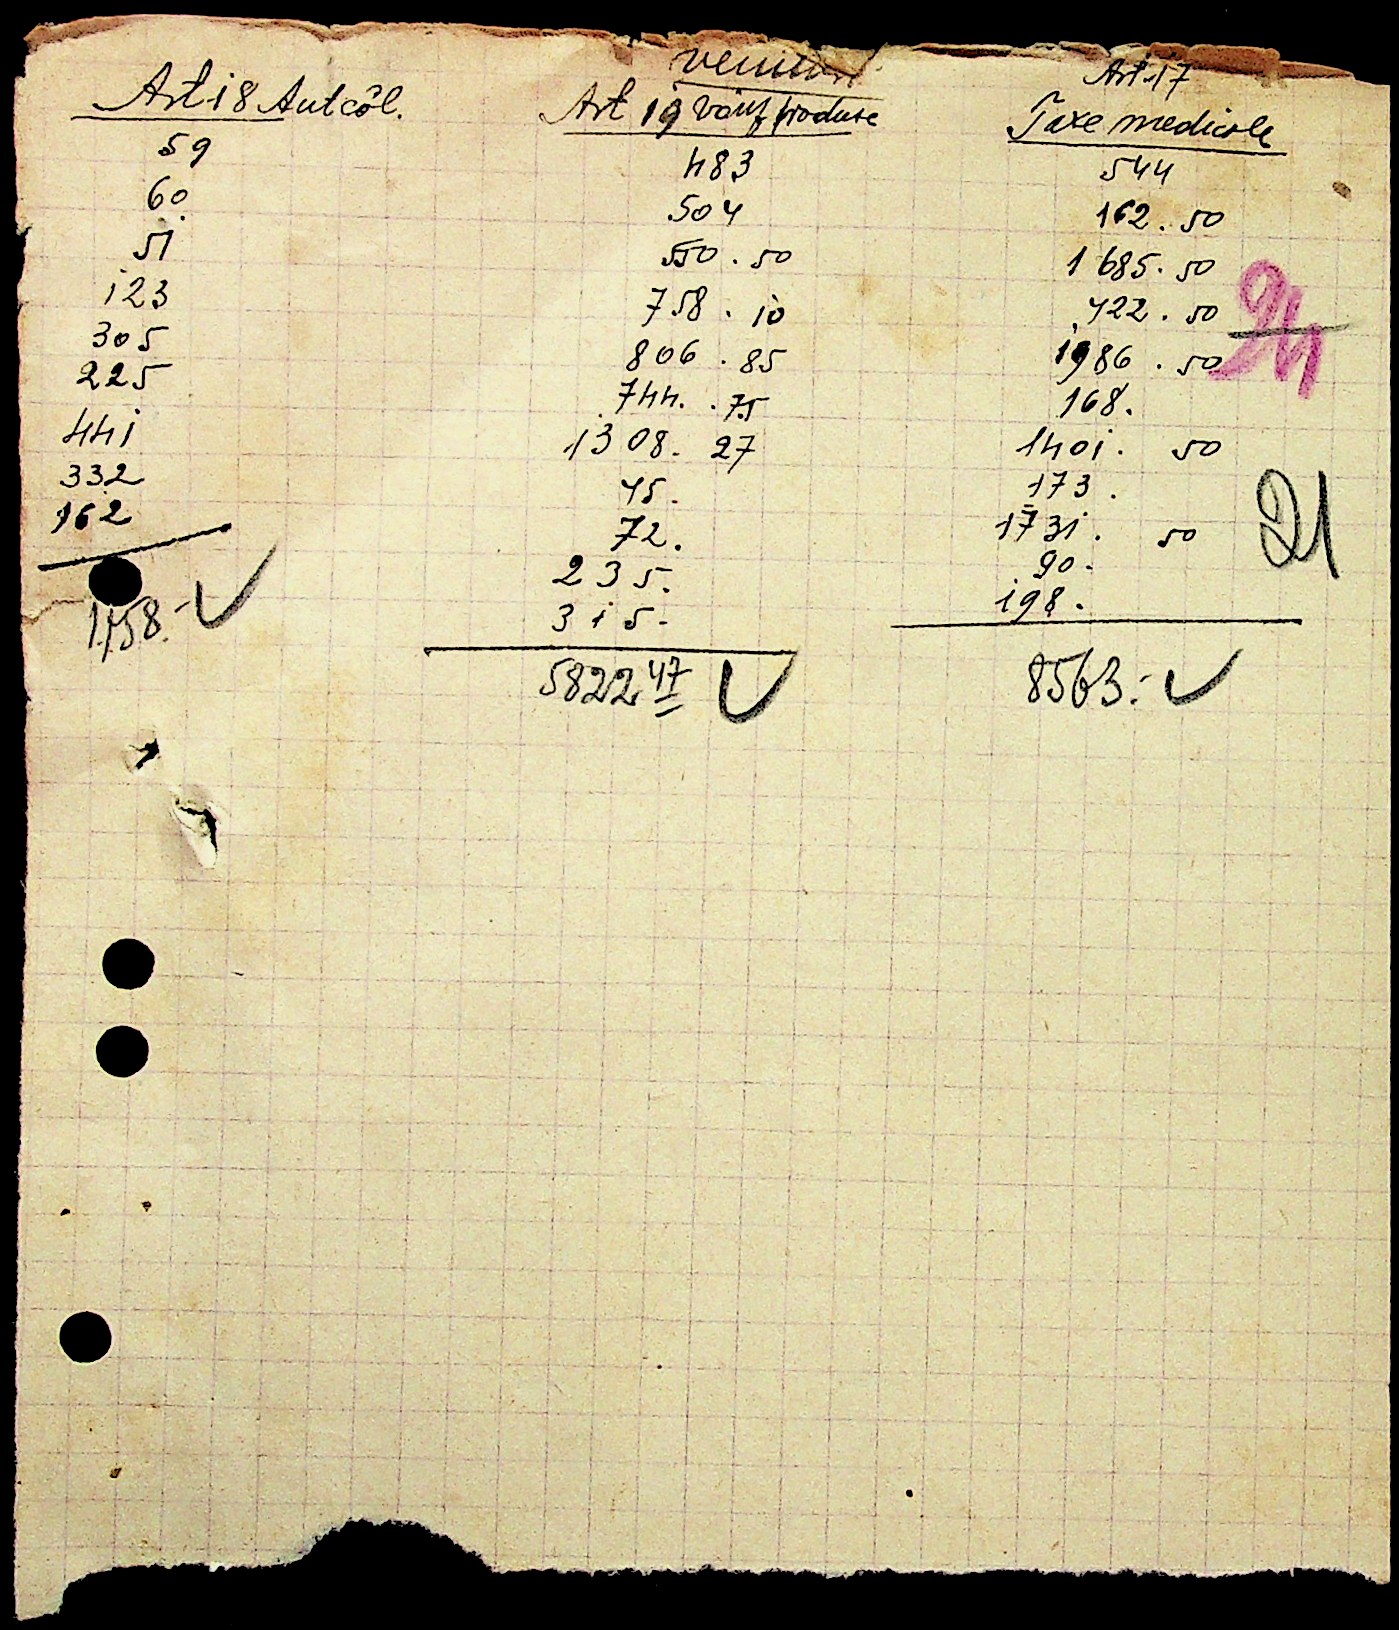 venituri
Art 18 Autcôl.
59
60.
51
123
305
225
441
332
162
1758.-
Art 19 Vânz produse
483
504
550.50
758.10
806.85
744.75
1308.27
45.
72.
235.
315.
5822 47
Art. 17
Taxe medicale
544
162.50
1685.50
422.50
1986.50
168.
1401.50
173.
1731.50
90.
198.
8563.-
24
21